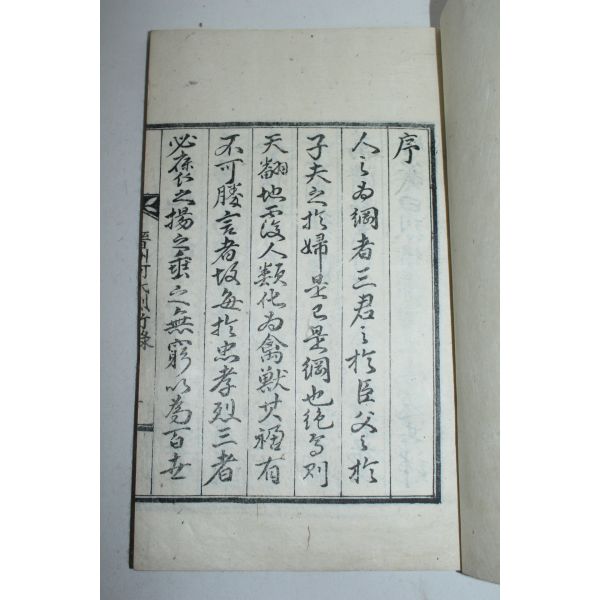 序
人之为綱者三君之於臣父之於
子夫之於婦是已是綱也绝焉则
天翻地覆人類化为禽獸其禍有
不可勝言者故每於忠孝烈三者
必褒之揚之垂之無窮以為百世
晋州河氏
行錄